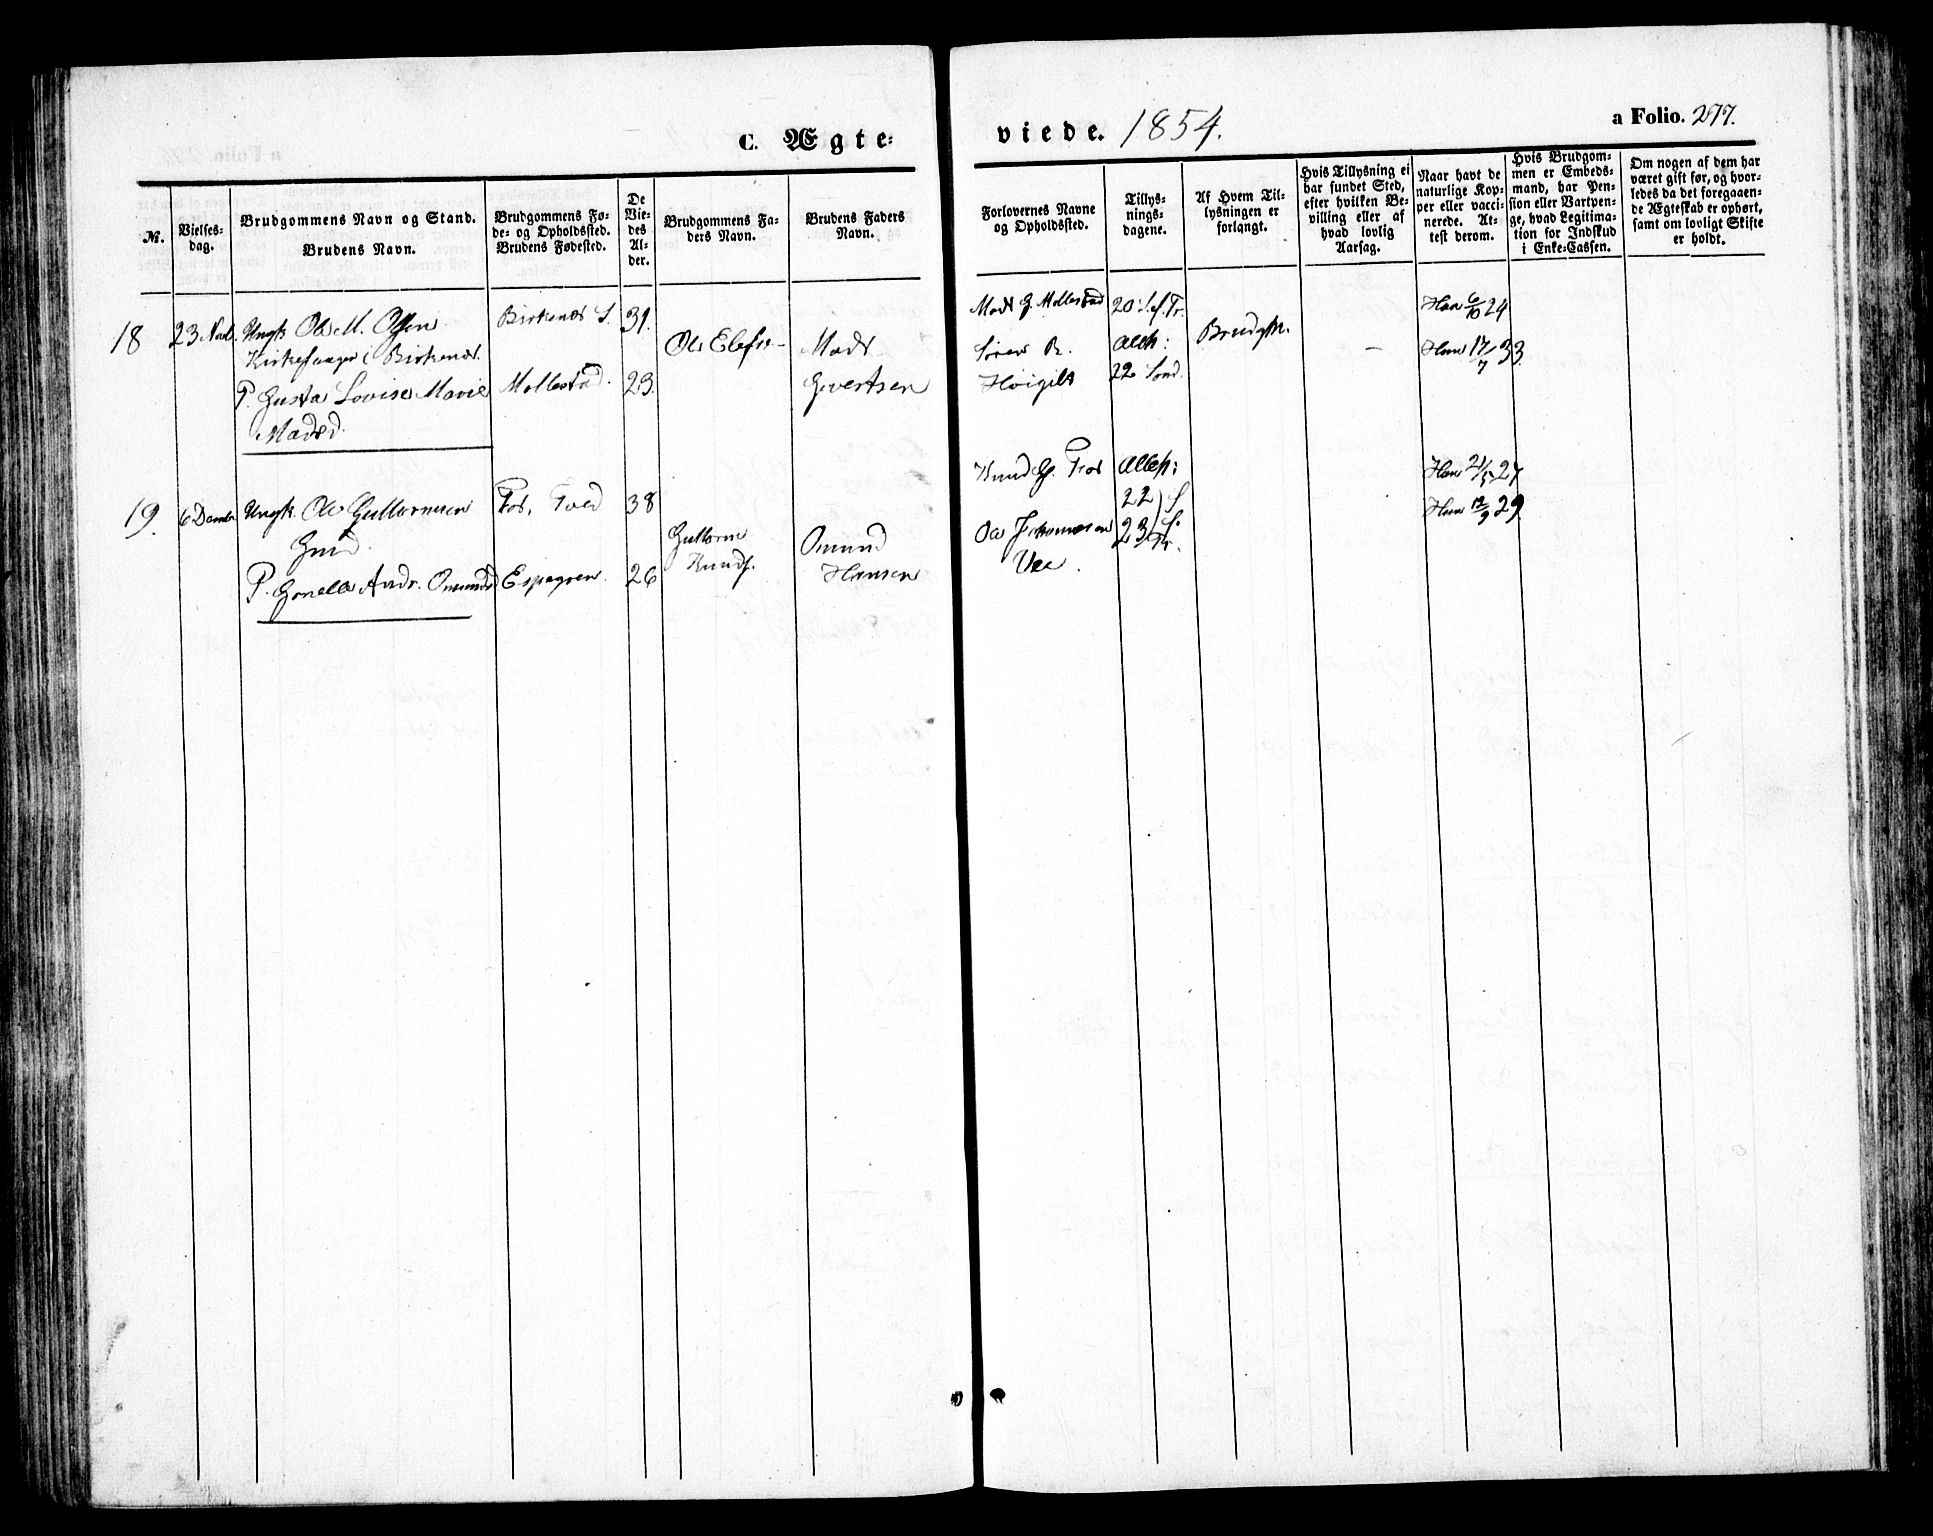 C. Ægte-
viede. 1854.
a Folio. 277.
№.
Vielses-
dag.
Brudgommens Navn og Stand.
Brudens Navn.
Brudgommens Fø-
de- og Opholdssted.
Brudens Fødested.
De
Vie-
des
Al-
der.
Brudgommens Fa-
ders Navn.
Brudens Faders
Navn.
Forlovernes Navne
og Opholdssted.
Tillys-
nings-
dagene.
Af Hvem Til-
lysningen er
forlangt.
Hvis Tillysning ei
har fundet Sted,
efter hvilken Be-
villing eller af
hvad lovlig
Aarsag.
Naar havt de
naturlige Kop-
per eller vacci-
nerede. At-
test derom.
Hvis Brudgom-
men er Embeds-
mand, har Pen-
sion eller Vartpen-
ge, hvad Legitima-
tion for Indskud
i Enke-Cassen.
Om nogen af dem har
været gift før, og hvor-
ledes da det foregaaen-
de Ægteskab er ophørt,
samt om lovligt Skifte
er holdt.
18
23 Novb.
Ungk. Ole M. Olsen
Kirkesanger i Birkenæs.
P. Gusta Lovise Marie
Madsd.
Birkenæs S.
Mollestad.
31.
23.
Ole Elefs-
Mads
Gvertsen
Mads G. Mollestad
Søren R.
Høigilt
20 S. ef. Tr.
Alleh:
22 Sønd.
Brudgk.
-
Han 6/10 24
Hun 17/7 33
19.
6 Decemb.
Ungk. Ole Guttormsen
P. Gonelle Andr. Omundsd
Fos, Tved
Espegren.
38
26
Guttorm
Knuds.
Omund
Hansen
Knud G. Fos
Ole Johannesen
Vee.
Alleh:
22) S
23) ef. Tr.
Han 21/5 27
Hun 12/9 29.